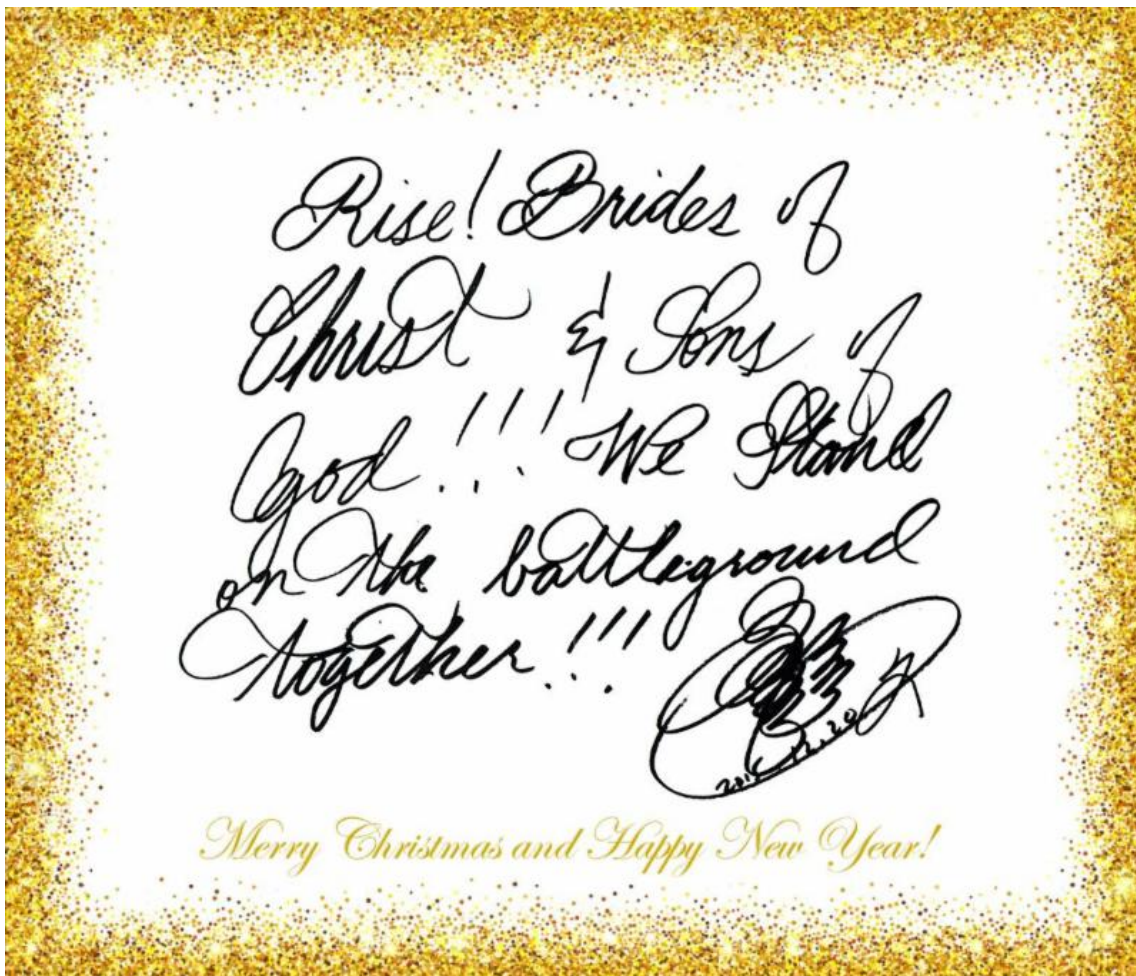 Rise! Brides of
Christ & Sons of
God!!! We Stand
on the battleground
together!!!
12.20
Merry Christmas and Happy New Year!